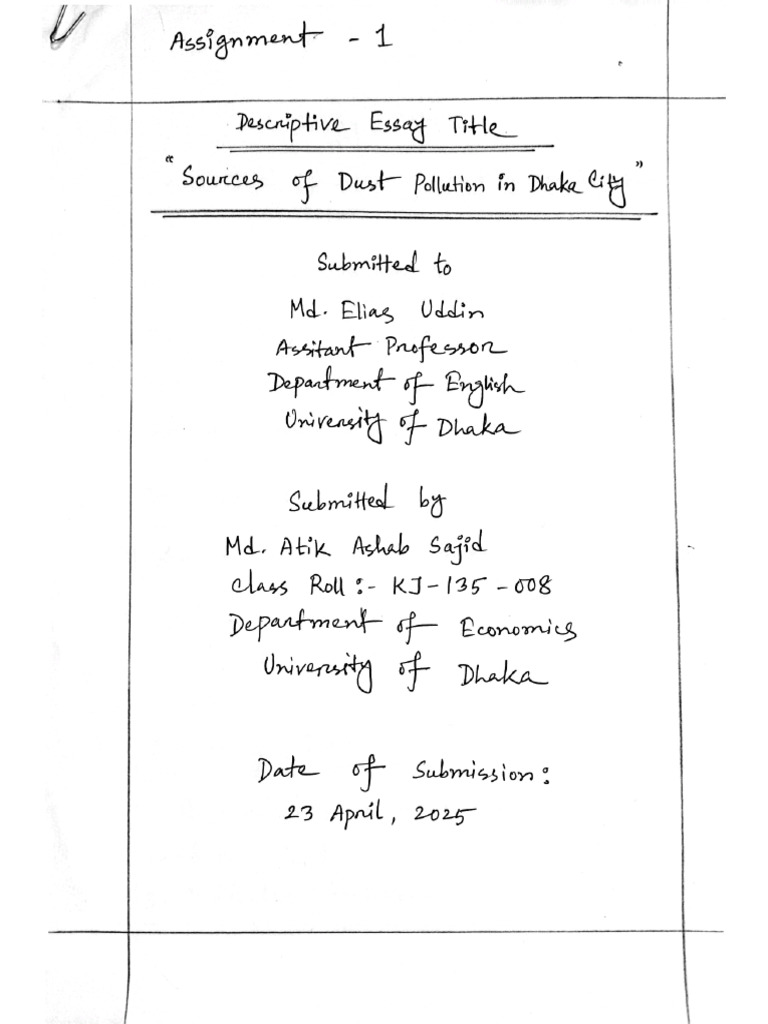 Assignment - 1
Descriptive Essay Title
"Sources of Dust Pollution in Dhaka City"
Submitted to
Md. Elias Uddin
Assitant Professor
Department of English
University of Dhaka
Submitted by
Md. Atik Ashab Sajid
Class Roll :- KJ-135-008
Department of Economics
University of Dhaka
Date of Submission:
23 April, 2025